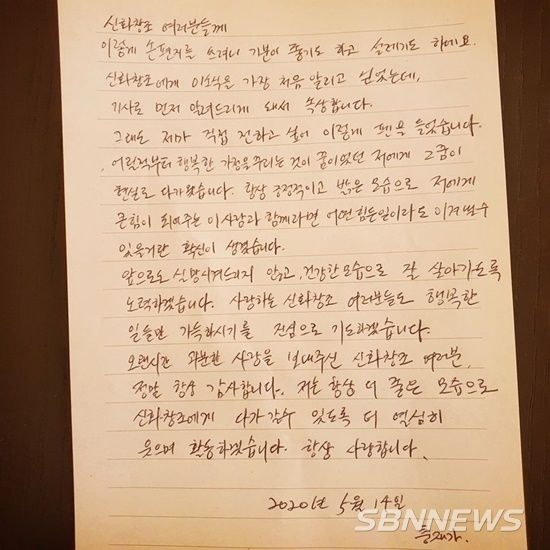 신화창조 여러분들께
이렇게 손편지를 쓰려니 기분이 좋기도 하고 설레기도 하네요.
신화창조에게 이소식을 가장 처음 알리고 싶었는데,
기사로 먼저 알려드리게 돼서 속상합니다.
그래도 제가 직접 전하고 싶어 이렇게 펜을 들었습니다.
어릴적부터 행복한 가정을꾸리는 것이 꿈이었던 저에게 그꿈이
현실로 다가왔습니다. 항상 긍정적이고 밝은 모습으로 저에게
큰힘이 되어주는 이사람과 함께라면 어떤힘든일이라도 이겨낼수
있을거란 확신이 생겼습니다.
앞으로도 실망시켜드리지 않고, 건강한 모습으로 잘 살아가도록
노력하겠습니다. 사랑하는 신화창조 여러분들도 행복한
일들만 가득하시기를 진심으로 기도하겠습니다.
오랜시간 과분한 사랑을 보내주신 신화창조 여러분,
정말 항상 감사합니다. 저는 항상 더 좋은 모습으로
신화창조에게 다가갈수 있도록 더 열심히
웃으며 활동하겠습니다. 항상 사랑합니다.
2020년 5월 14일
SBNNEWS